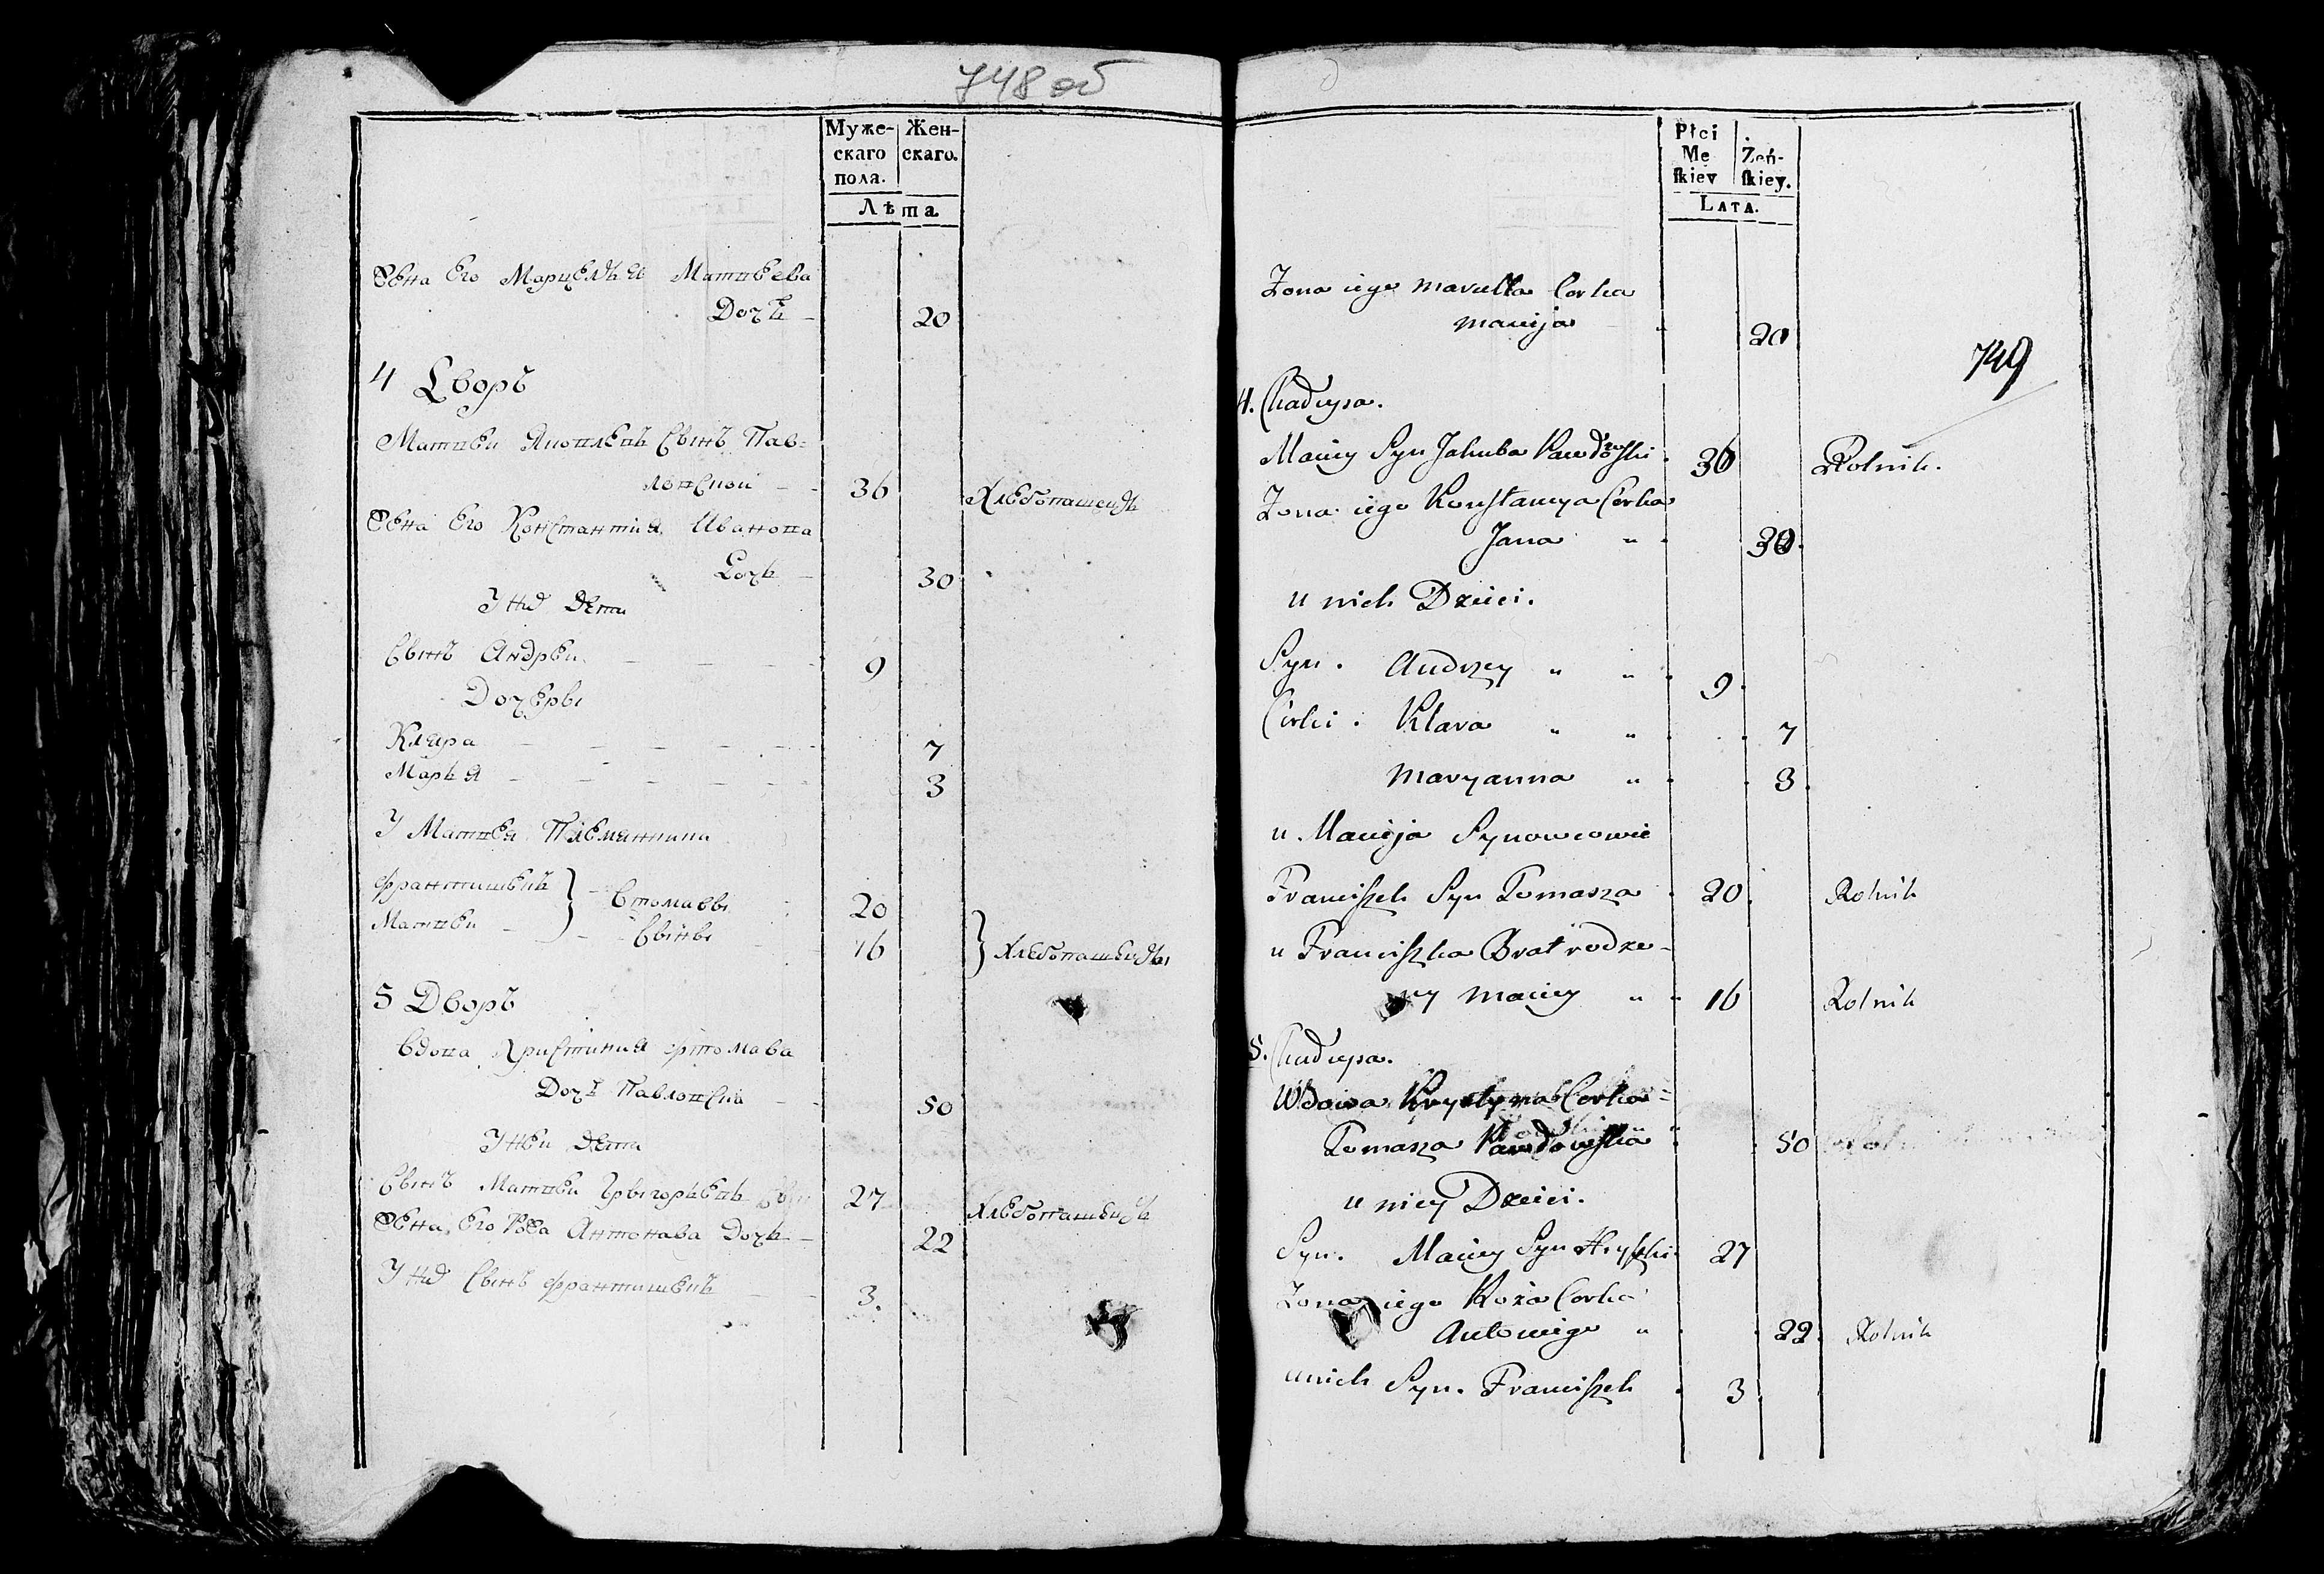 748 об
Муже-
скаго
пола.
Жен-
скаго.
Лѣта
Жена Его Марцелья Матвеева
Дочь 20
4 Дворъ
Матвеи Яковлевъ Сынъ Пав-
ловской 36 Хлебопашецъ
Жена Его Константия Иванова
Дочь 30
У них Дети
Сынъ Андреи 9
Дочеры
Клара 7
Марья 3
У Матвея Племянники
Франтишекъ
Матвеи
} Фтомавы 20
Сыны 16
} Хлебопашецы
5 Дворъ
Вдова Христиния Фтомава
Дочь Павловска 50
У неи Дети
Сынъ Матвеи Грыгорьевъ 27 Хлебопашецъ
Жена Его Роза Антонава Дочь 22
У них Сынъ Франтишекъ 3.
Płci
Mę
skiey
Żeń-
skiey.
LATA.
Zona iego Marcella Corka
Macieja 20
749
4. Chałupa.
Maciey Syn Jakuba Pawłowski 36 Rolnik.
Zona iego Konstancya Corka
Jana 30.
u nich Dzieci.
Syn. Andrzey 9.
Corki. Klara 7
Maryanna 3.
u Macieja Synowcowie
Franciszek Syn Tomasza 20. Rolnik
u Franciszka Brat rodzo-
ny Maciey 16 Rolnik
5. Chałupa.
Wdowa Krystyna Corka
Tomasza Pawłowska 50
u niey Dzieci.
Syn. Maciey Syn Hryszki 27
Zona iego Roża Corka
Antoniego 22. Rolnik
u nich Syn. Franciszek 3.